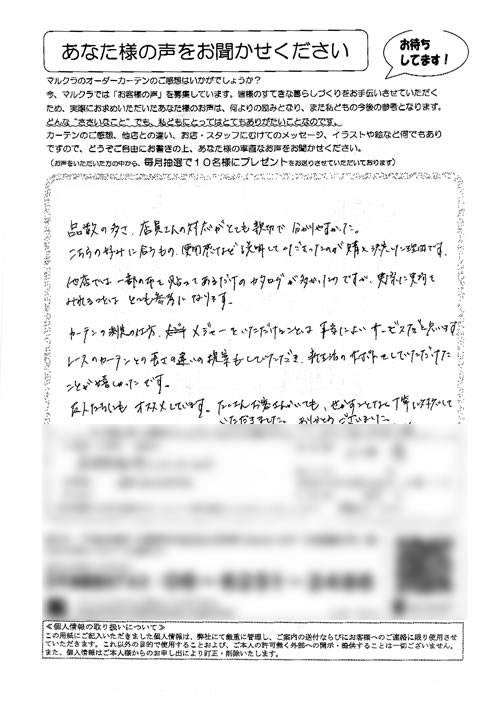 あなた様の声をお聞かせください
お待ち
してます!
マルクラのオーダーカーテンのご感想はいかがでしょうか?
今、マルクラでは「お客様の声」を募集しています。皆様のすてきな暮らしづくりをお手伝いさせていただく
ため、実際にお求めいただいたあなた様のお声は、何よりの励みとなり、また私どもの今後の参考となります。
どんな“ささいなこと”でも、私どもにとってはとてもありがたいことなのです。
カーテンのご感想、他店との違い、お店・スタッフにむけてのメッセージ、イラストや絵など何でもあり
ますので、どうぞご自由にお書きの上、あなた様の率直なお声をお聞かせください。
(お声をいただいた方の中から、毎月抽選で10名様にプレゼントをお送りさせていただいております)
品数の多さ、店員さんの対応がとても親切で分かりやすかった。
こちらの好みに合うもの、使用感など説明してくださったのが購入を決めた理由です。
他店では一部の布を貼ってあるだけのカタログが多かったのですが、実際に実物を
みれることは とても参考になります。
カーテンの測り方の仕方、メジャーをいただけたことは 本当によいサービスだと思います
レースのカーテンとの長さの違いの提案もしていただき、新生活のサポートをしていただけた
ことが嬉しかったです。
友人たちにも オススメしています。たくさんお客さんがいても、せかすことなく丁寧に対応して
いただきました。ありがとうございました。
≪個人情報の取り扱いについて≫
この用紙にご記入いただきました個人情報は、弊社にて厳重に管理し、ご案内の送付ならびにお客様へのご連絡に限り使用させ
ていただきます。これ以外の目的で使用することおよび、ご本人の許可無く外部への開示・提供することは一切ございません。
また、個人情報はご本人様からのお申し出により訂正・削除いたします。